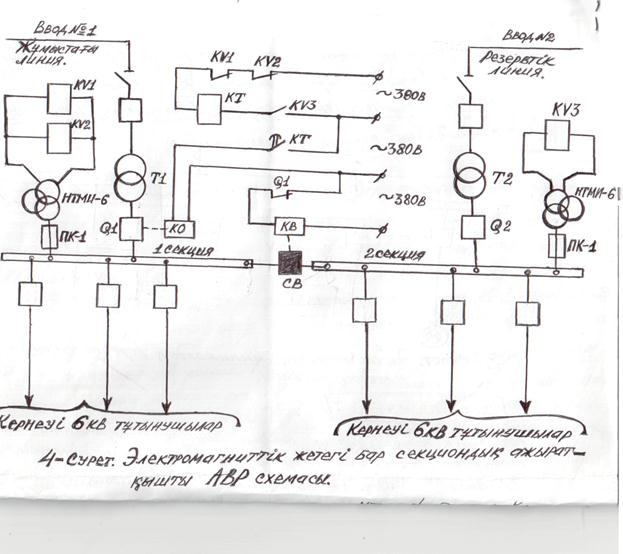 Ввод №1
Жұмыстағы
линия.
Ввод N2
Резервтік
линия.
KV1 KV2
~380В
KV1
KV2
КТ
KV3
KV3
КТ
~380В
Q1
~380В
НТМИ-6
Т1
Т2
НТМИ-6
Q1
КО
КВ
Q2
ПК-1
ПК-1
1 секция
2 секция
СВ
Кернеуі 6кВ тұтынушылар
Кернеуі 6кВ тұтынушылар
4-Сурет. Электромагниттік жетегі бар секциондық ажырат-
қышты АВР схемасы.